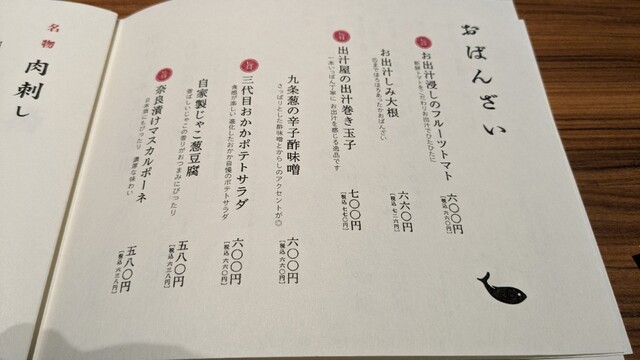 おばんざい
お出汁浸しのフルーツトマト
六〇〇円
［税込 六六〇円］
お出汁しみ大根
芯までほろほろあったかおばんざい
六六〇円
［税込 七二六円］
出汁屋の出汁巻き玉子
一本いっぽん丁寧に お出汁を感じる逸品です
七〇〇円
［税込 七七〇円］
九条葱の辛子酢味噌
さっぱりとした酢味噌とからしのアクセントが◎
六〇〇円
［税込 六六〇円］
三代目おかかポテトサラダ
食感が楽しい 進化したおかか自慢のポテトサラダ
六〇〇円
［税込 六六〇円］
自家製じゃこ葱豆腐
香ばしいじゃこの香りがおつまみにぴったり
五八〇円
［税込 六三八円］
奈良漬けマスカルポーネ
日本酒にもぴったり 濃厚な味わい
五八〇円
［税込 六三八円］
名物
肉刺し